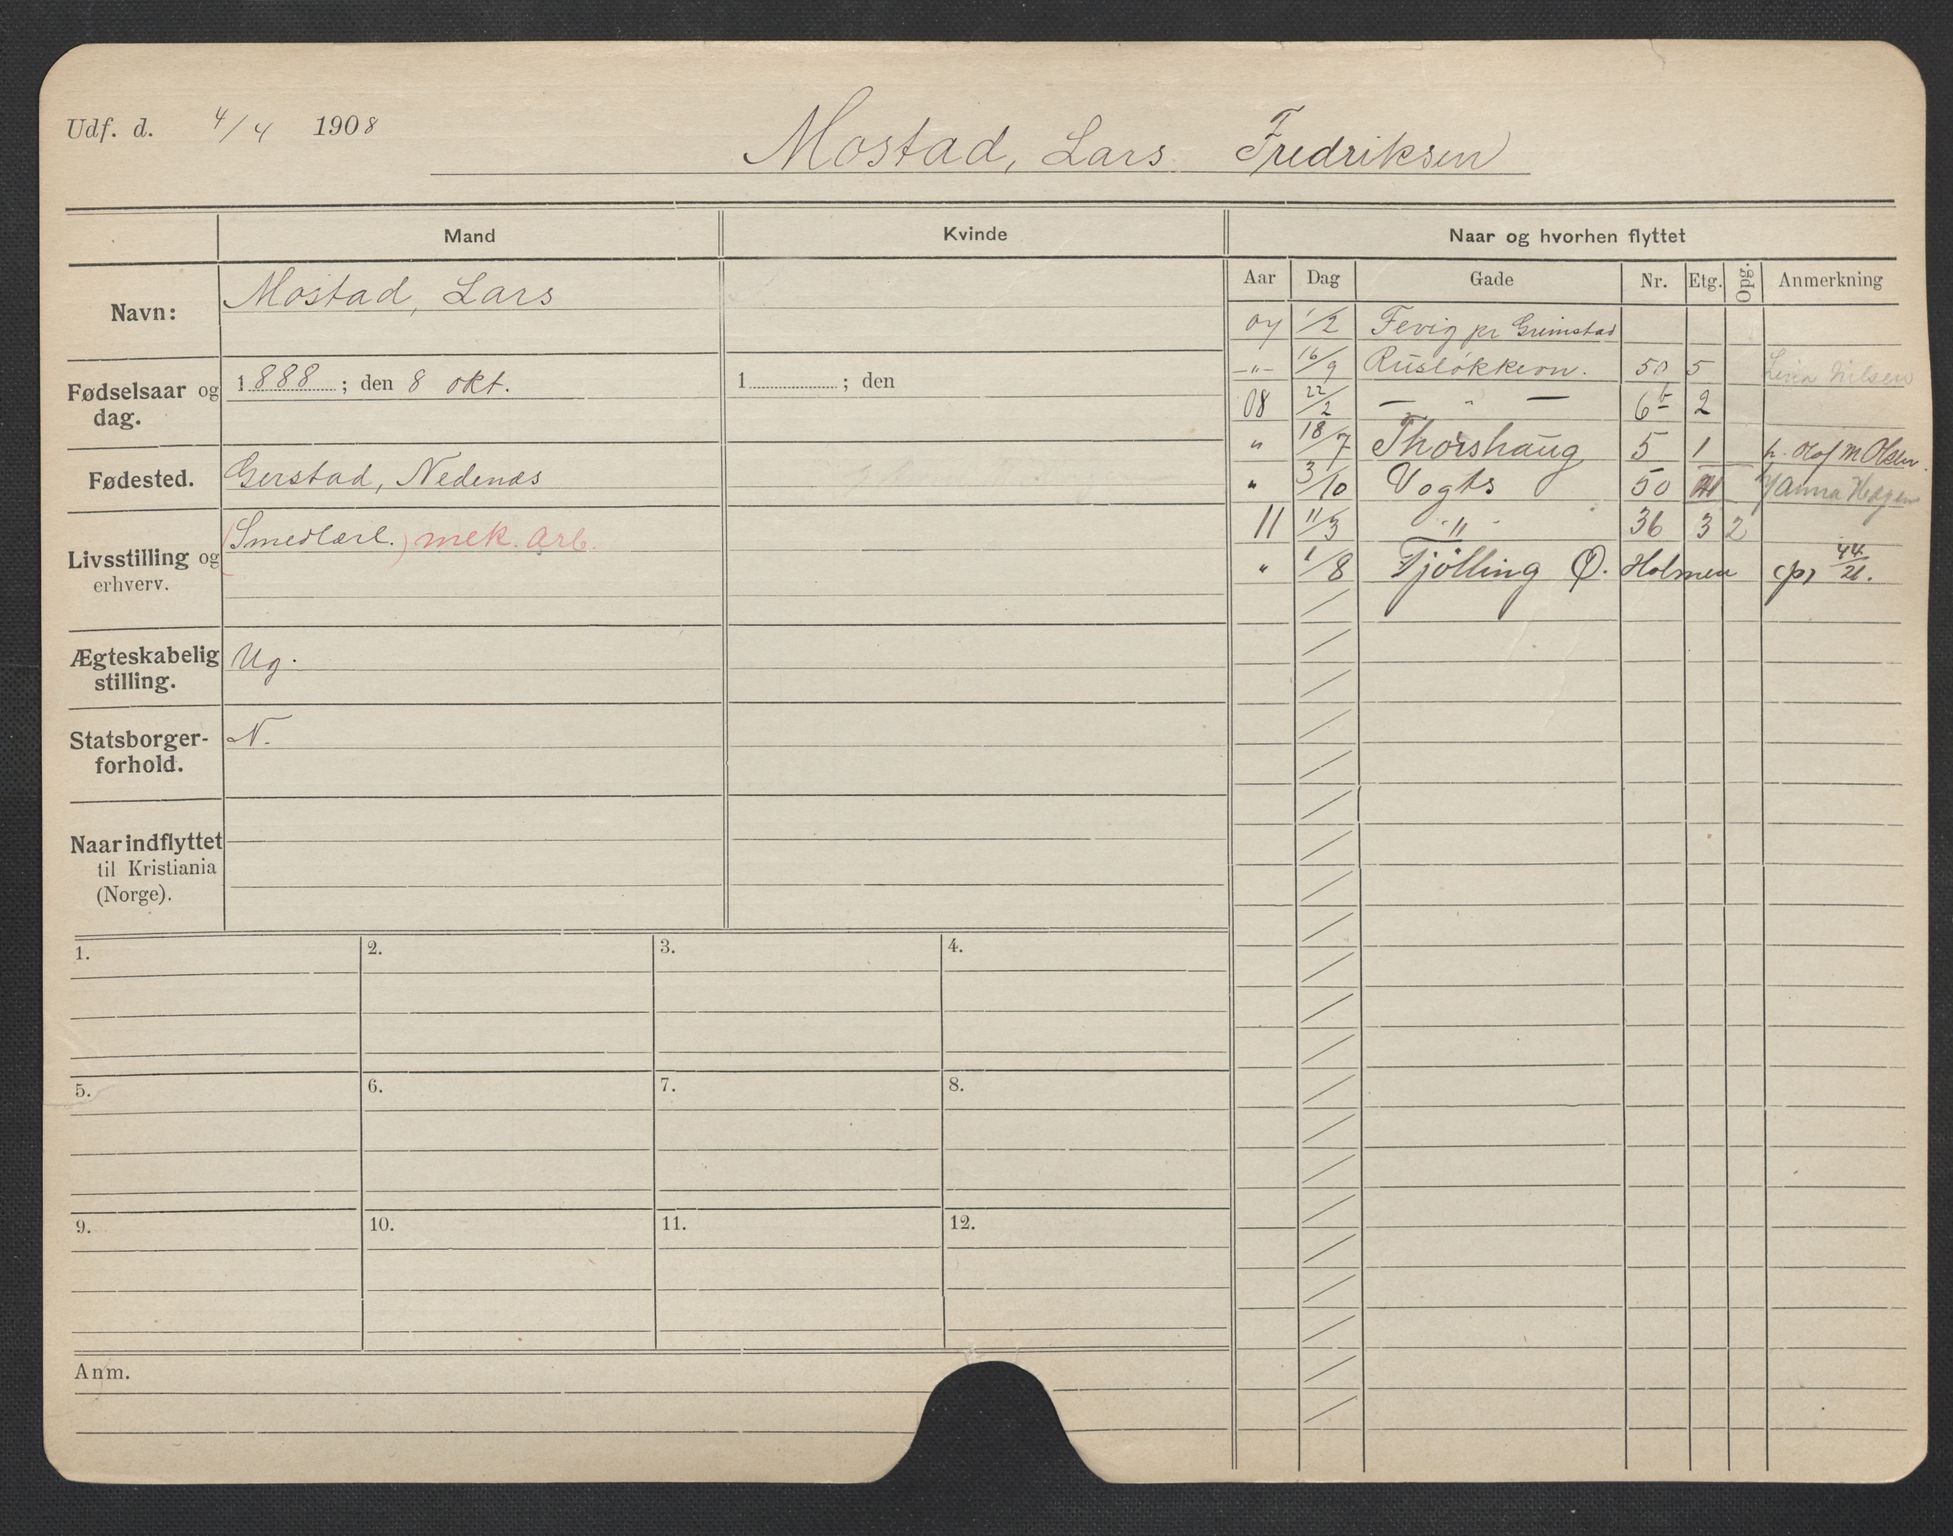 Udf. d. 4/4 1908
Mostad, Lars Fredriksen
Mand Kvinde Naar og hvorhen flyttet
Aar Dag Gade Nr. Etg. Opg. Anmerkning
Navn: Mostad, Lars
Fødselsaar og dag. 1888; den 8 okt. 1 ; den
Fødested. Gerstad, Nedenæs
Livsstilling og erhverv. (Smedlærl.) mek. Arb.
Ægteskabelig stilling. Ug.
Statsborgerforhold. N.
Naar indflyttet til Kristiania (Norge).
07 1/2 Fevig pr Grimstad
-"- 16/9 Rusløkkevn. 50 5 Nilsen
08 22/2 — " — 6b 2
" 18/7 Thorshaug 5 1 p. Olof M Olsen.
" 3/10 Vogts 50 Anna
11 11/3 " 36 3 2
" 1/8 Tjølling Ø. Holmen (p) 44/21.
1. 2. 3. 4.
5. 6. 7. 8.
9. 10. 11. 12.
Anm.